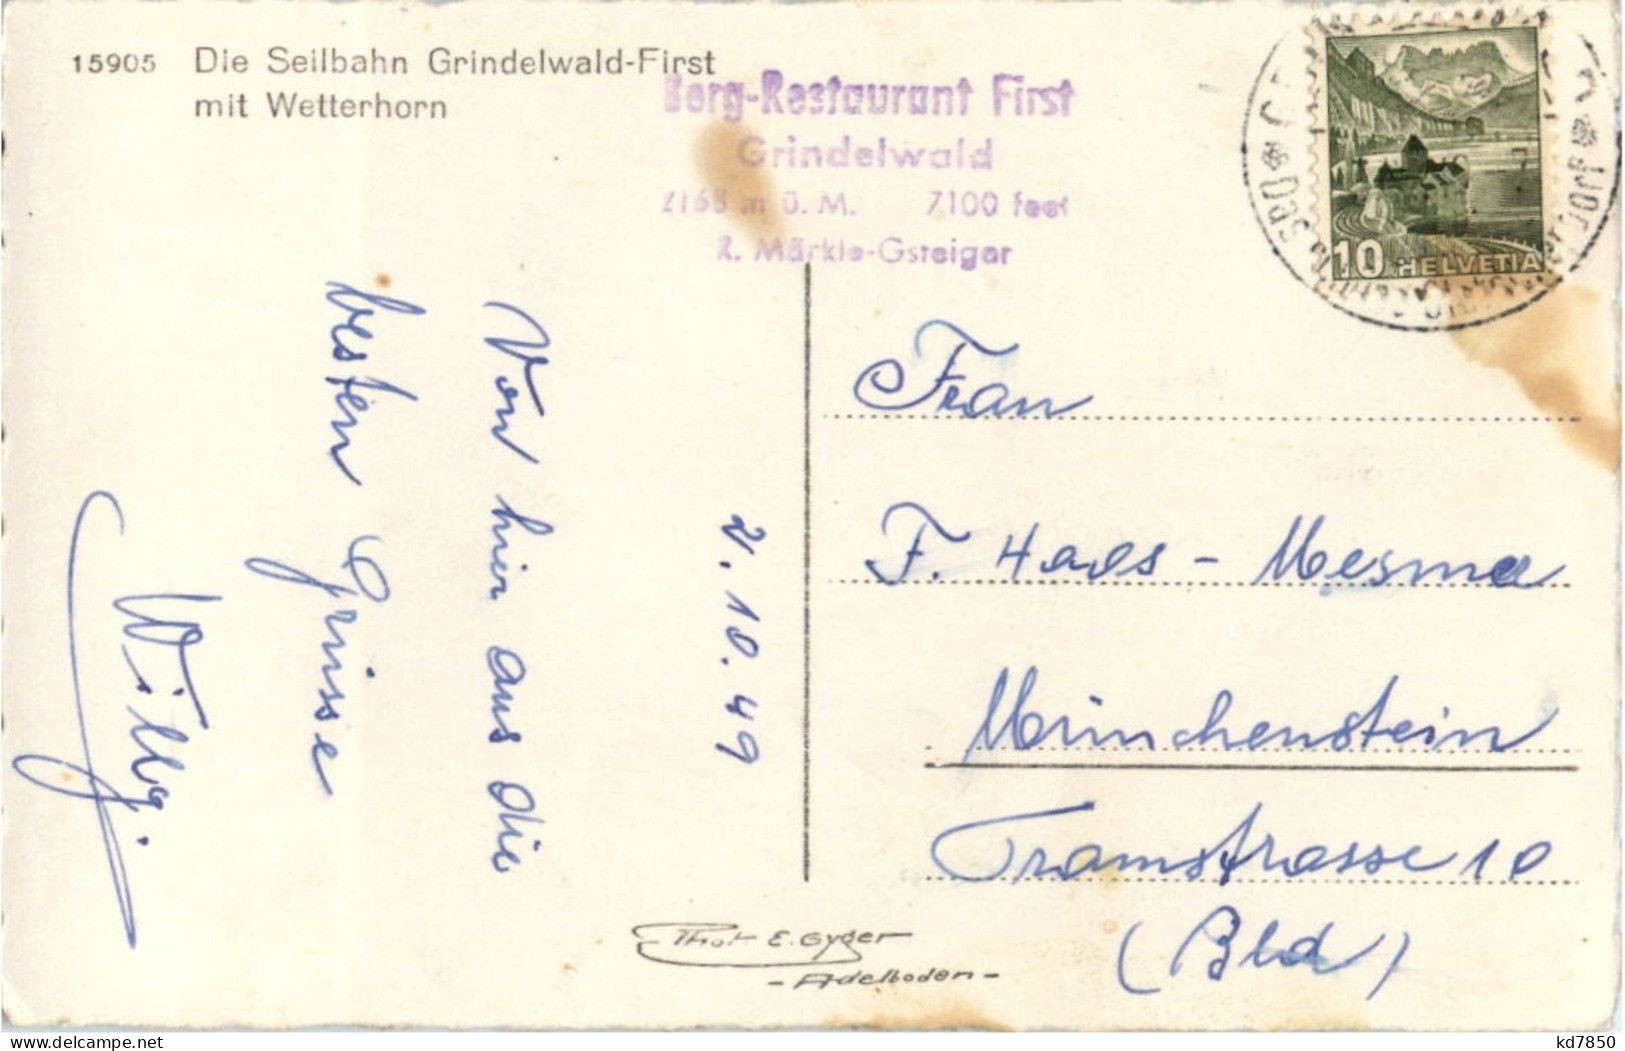 15905 Die Seilbahn Grindelwald-First
mit Wetterhorn
Berg-Restaurant First
Grindelwald
2168 m ü. M. 7100 feet
R. Märkle-Gsteiger
10 HELVETIA
2. 10. 49
Von hier aus die
besten Grüsse
Willy.
Frau
F. Haas - Mesmer
Münchenstein
Tramstrasse 10
(Bld)
Phot E. Gyger
- Adelboden -
delcampe.net
kd7850